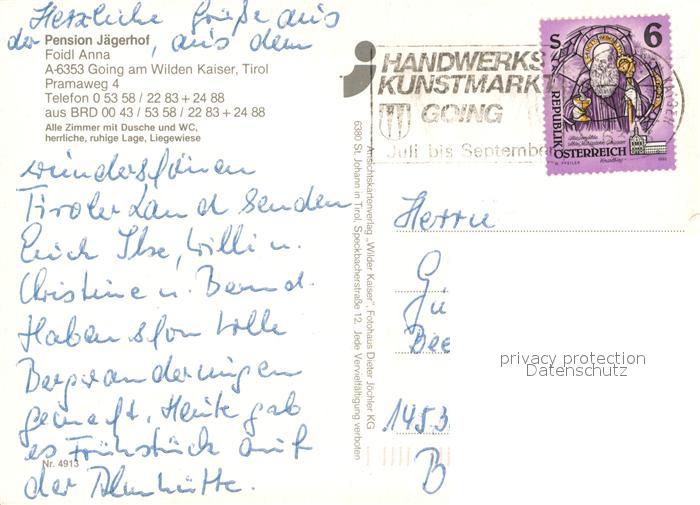 Herzliche Grüße aus
der Pension Jägerhof, aus dem
Foidl Anna
A-6353 Going am Wilden Kaiser, Tirol
Pramaweg 4
Telefon 0 53 58 / 22 83 + 24 88
aus BRD 00 43 / 53 58 / 22 83 + 24 88
Alle Zimmer mit Dusche und WC,
herrliche, ruhige Lage, Liegewiese
wunderschönen
Tiroler Land senden
Euch Ilse, Willi u.
Christine u. Bernd.
Haben schon tolle
Bergwanderungen
gemacht. Heute gab
es Frühstück auf
der Almhütte.
Nr. 4913
Ansichtskartenverlag „Wilder Kaiser", Fotohaus Dieter Jöchler KG
6380 St. Johann in Tirol, Speckbacherstraße 12. Jede Vervielfältigung verboten
HANDWERKS
KUNSTMARKT
GOING
Juli bis September
S 6
REPUBLIK
ÖSTERREICH
Herrn
G
Gü
Bee
1453
B
privacy protection
Datenschutz